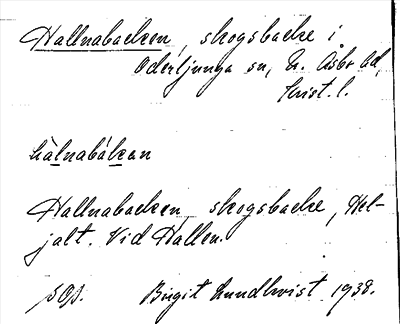 Hallnabacken, skogsbacke i
Oderljunga sn, N. Åsbo hd,
Krist. l.
hàlnabákan
Hallnabacken, skogsbacke, Hel-
jalt. Vid Hallen.
Birgit Lundkvist 1938.